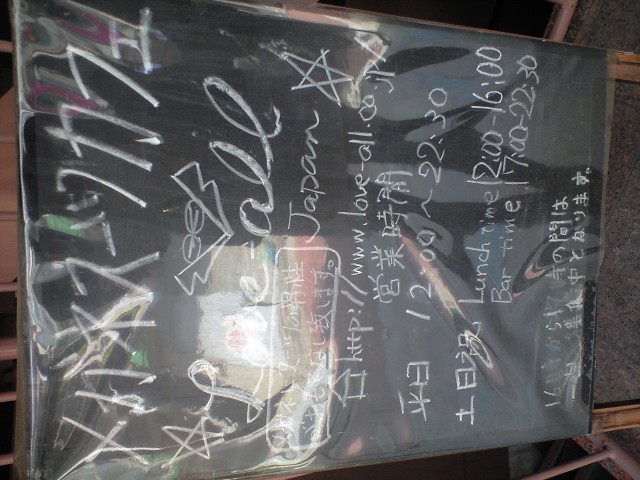 カフェ
Love-all
Japan
致します。
http://www.love-all.co.jp/
営業時間
平日 12:00～22:30
土日祝 Lunch time 12:00-16:00
Bar time 17:00-22:30
16時から17時の間は
一旦準備中となります。